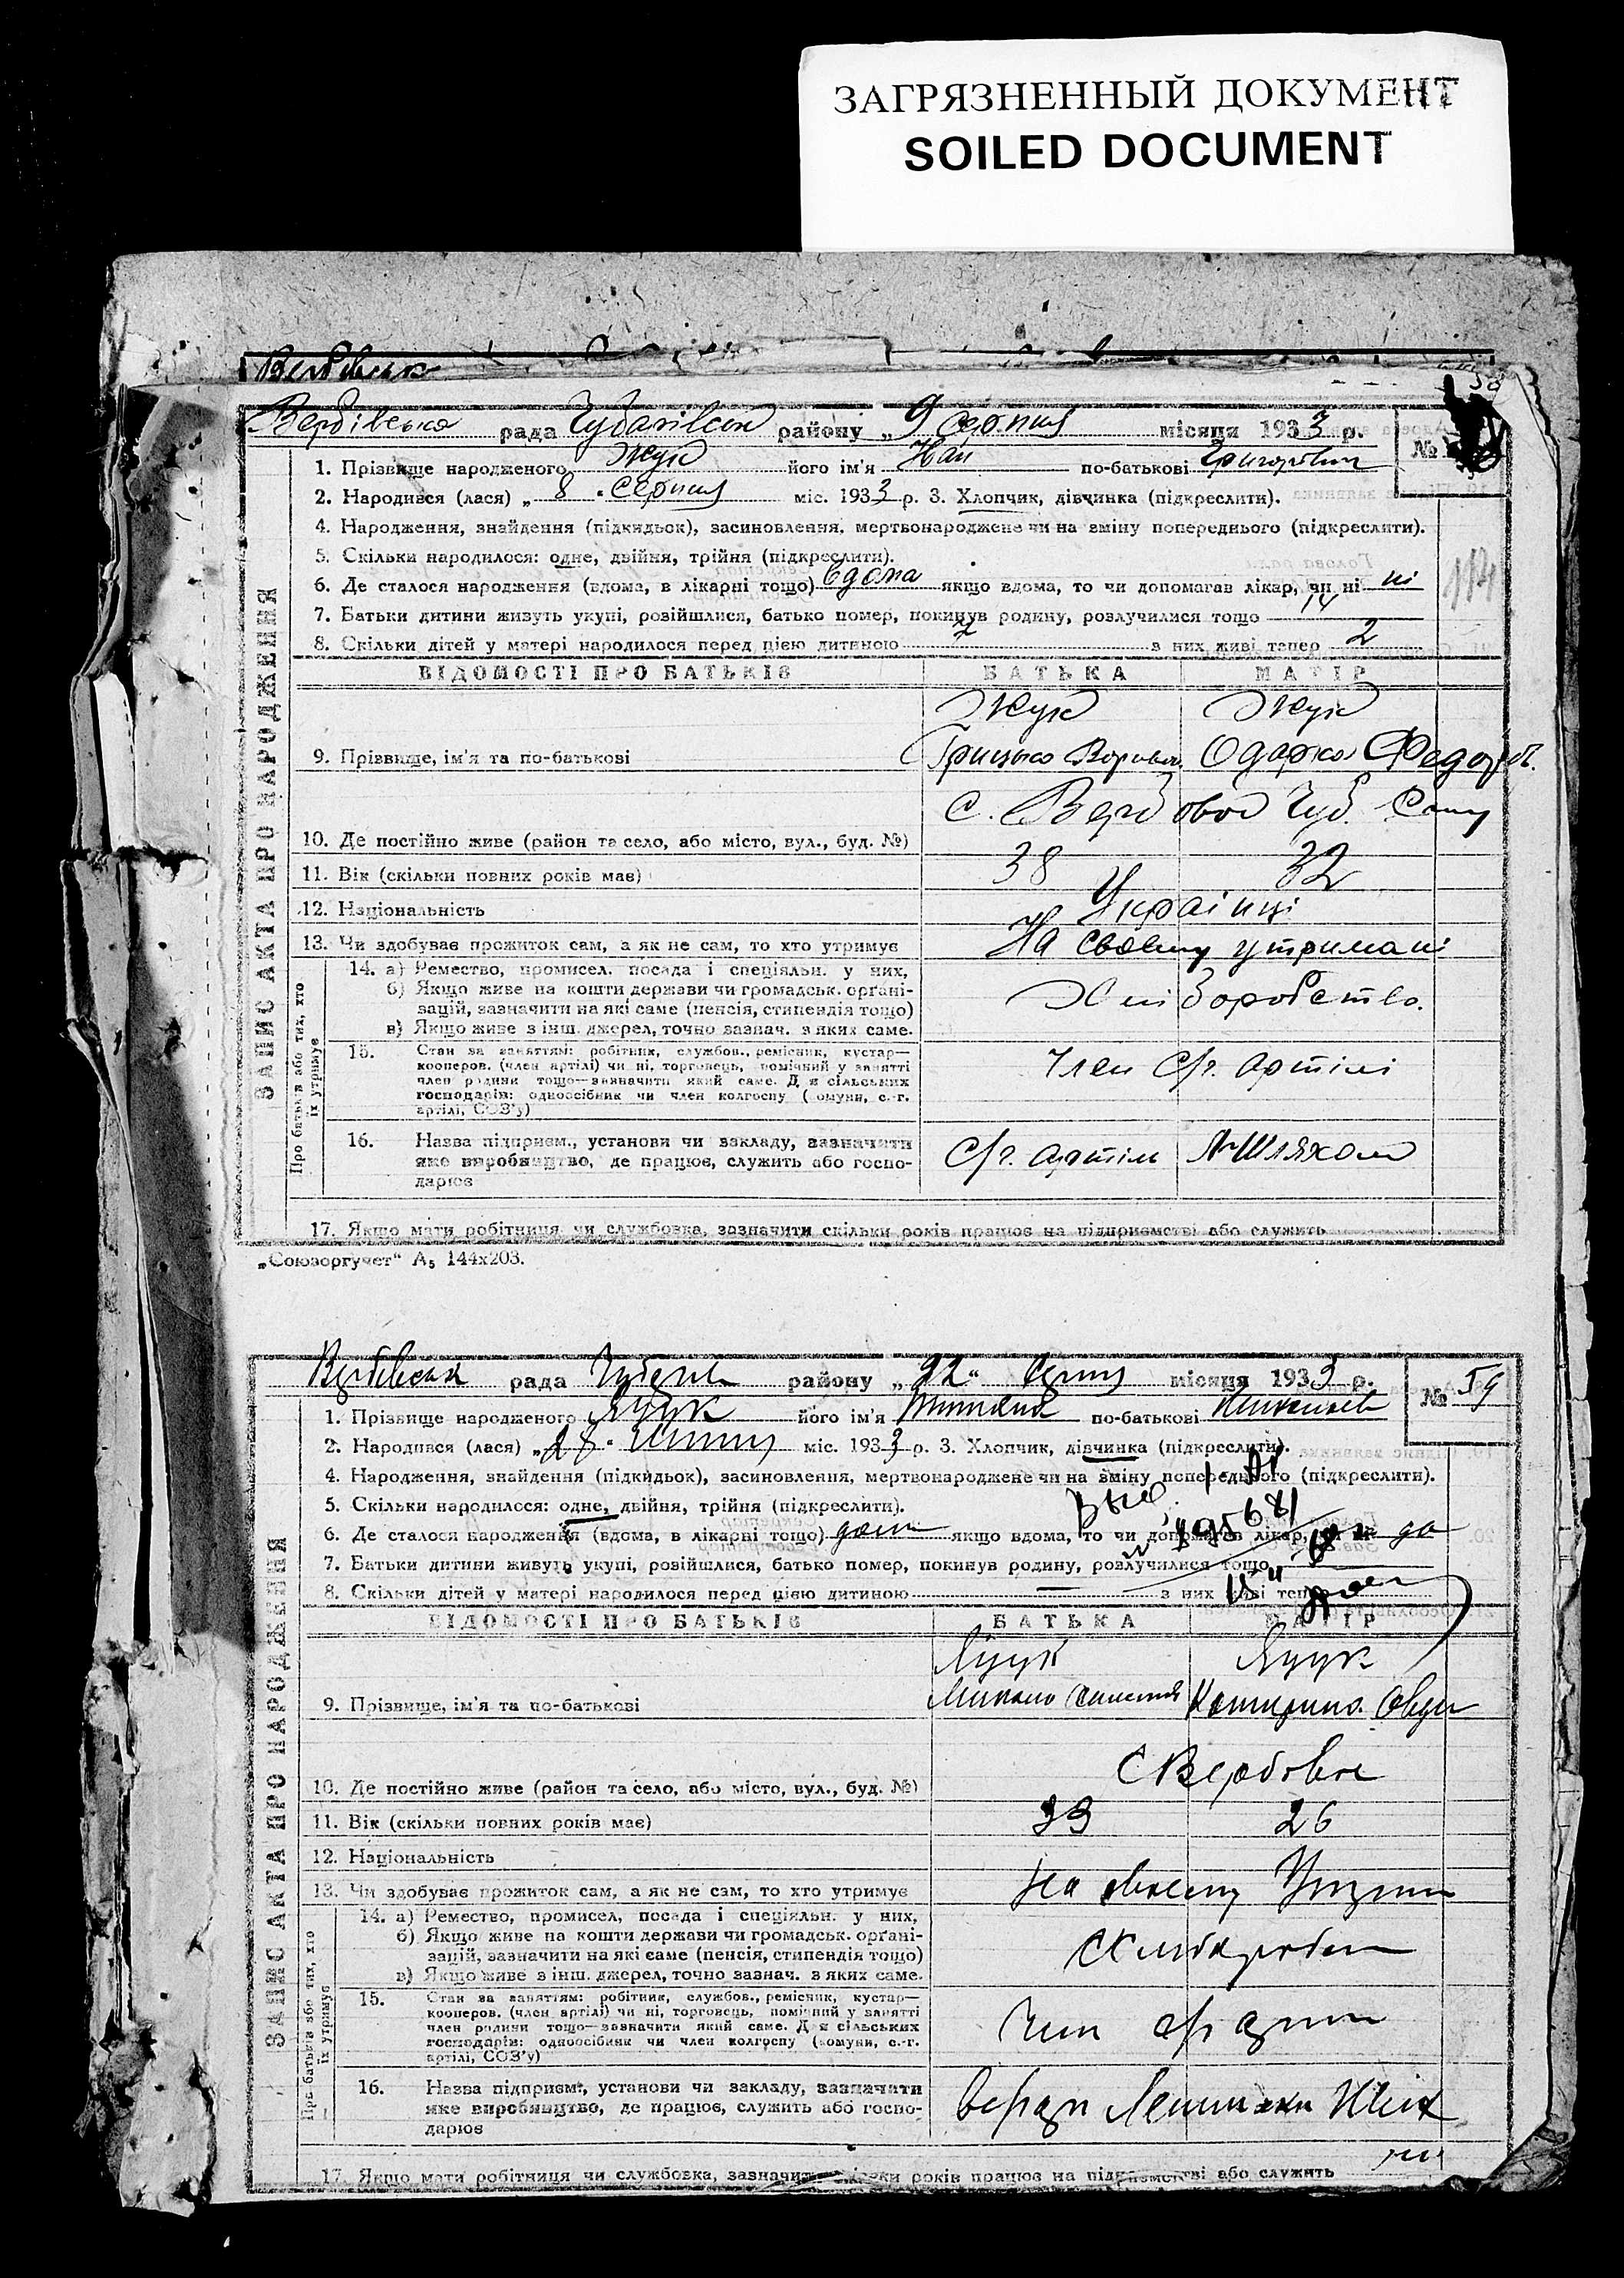 ЗАГРЯЗНЕННЫЙ ДОКУМЕНТ
SOILED DOCUMENT
Вербівськ
58
Вербівська рада Чубарівськ району „ 9 серпня місяця 1933 р.
№
1. Прізвище народженого Жук його ім'я Іван по-батькові Григорович
2. Народився (лася) „ 8 " серпня міс. 1933 р. 3. Хлопчик, дівчинка (підкреслити).
4. Народження, знайдення (підкидьок), засиновлення, мертвонароджене чи на зміну попереднього (підкреслити).
5. Скільки народилося: одне, двійня, трійня (підкреслити).
6. Де сталося народження (вдома, в лікарні тощо) вдома якщо вдома, то чи допомагав лікар, чи ні ні
7. Батьки дитини живуть укупі, розійшлися, батько помер, покинув родину, розлучилися тощо 14
8. Скільки дітей у матері народилося перед цією дитиною 2 з них живі тепер 2
ВІДОМОСТІ ПРО БАТЬКІВ БАТЬКА МАТІР
Жук Жук
9. Прізвище, ім'я та по-батькові Грицько Одарка Федор
с. Вербовое Чуб.
10. Де постійно живе (район та село, або місто, вул., буд. №)
11. Вік (скільки повних років має) 38 32
12. Національність Українці
13. Чи здобуває прожиток сам, а як не сам, то хто утримує На своєму утримані
14. а) Ремество, промисел, посада і спеціяльн. у них,
б) Якщо живе на кошти держави чи громадськ. орґані-
зацій, зазначити на які саме (пенсія, стипендія тощо)
в) Якщо живе з інш. джерел, точно зазнач. з яких саме.
Хліборобство.
15. Стан за заняттям: робітник, службов., ремісник, кустар—
кооперов. (член артілі) чи ні, торговець, помічний у занятті
член родини тощо—зазначити який саме. Для сільських
господарів: одноосібник чи член колгоспу (комуни, с.-г.
артілі, СОЗ'у)
Член с/г. артілі
16. Назва підприєм., установи чи закладу, зазначити
яке виробництво, де працює, служить або госпо-
дарює
с/г. артіль Л-Шляхом
17. Якщо мати робітниця чи службовка, зазначити скільки років працює на підприємстві або служить
ЗАПИС АКТА ПРО НАРОДЖЕННЯ
Про батьків або тих, хто
їх утримує
„Союзоргучет" А5 144х203.
Вербівська рада району „ 22 " серпня місяця 1933 р.
№ 59
1. Прізвище народженого Яцук його ім'я по-батькові
2. Народився (лася) „ 28 " міс. 1933 р. 3. Хлопчик, дівчинка (підкреслити).
4. Народження, знайдення (підкидьок), засиновлення, мертвонароджене чи на зміну попереднього (підкреслити).
5. Скільки народилося: одне, двійня, трійня (підкреслити).
6. Де сталося народження (вдома, в лікарні тощо) дома якщо вдома, то чи допомагав лікар, чи ні да
7. Батьки дитини живуть укупі, розійшлися, батько помер, покинув родину, розлучилися тощо
8. Скільки дітей у матері народилося перед цією дитиною — з них живі тепер
ВІДОМОСТІ ПРО БАТЬКІВ БАТЬКА МАТІР
Яцук Яцук
9. Прізвище, ім'я та по-батькові Микола Катерина
с Вербовое
10. Де постійно живе (район та село, або місто, вул., буд. №)
11. Вік (скільки повних років має) 33 26
12. Національність
13. Чи здобуває прожиток сам, а як не сам, то хто утримує на своєму
14. а) Ремество, промисел, посада і спеціяльн. у них,
б) Якщо живе на кошти держави чи громадськ. орґані-
зацій, зазначити на які саме (пенсія, стипендія тощо)
в) Якщо живе з інш. джерел, точно зазнач. з яких саме.
15. Стан за заняттям: робітник, службов., ремісник, кустар—
кооперов. (член артілі) чи ні, торговець, помічний у занятті
член родини тощо—зазначити який саме. Для сільських
господарів: одноосібник чи член колгоспу (комуни, с.-г.
артілі, СОЗ'у)
16. Назва підприєм., установи чи закладу, зазначити
яке виробництво, де працює, служить або госпо-
дарює
17. Якщо мати робітниця чи службовка, зазначити скільки років працює на підприємстві або служить
ЗАПИС АКТА ПРО НАРОДЖЕННЯ
Про батьків або тих, хто
їх утримує